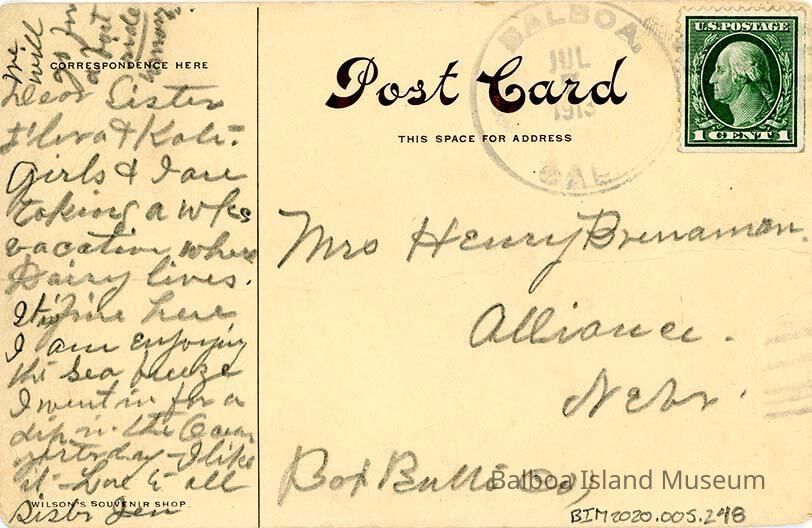 We
will
go for
a boat
ride
CORRESPONDENCE HERE
Dear Sister
& Kate-
Girls & I are
taking a wks
vacation where
Dairy lives.
It is fine here
I am enjoying
the sea breeze
I went in for a
dip in the Ocean
yesterday - I like
it - Love to all
Sister Jen
WILSON'S SOUVENIR SHOP
Post Card
THIS SPACE FOR ADDRESS
BALBOA,
JUL
1913
CAL.
U.S. POSTAGE
1 CENT 1
Mrs Henry Brenaman.
Alliance.
Nebr.
Box Butte Co,
Balboa Island Museum
BIM2020.005.248